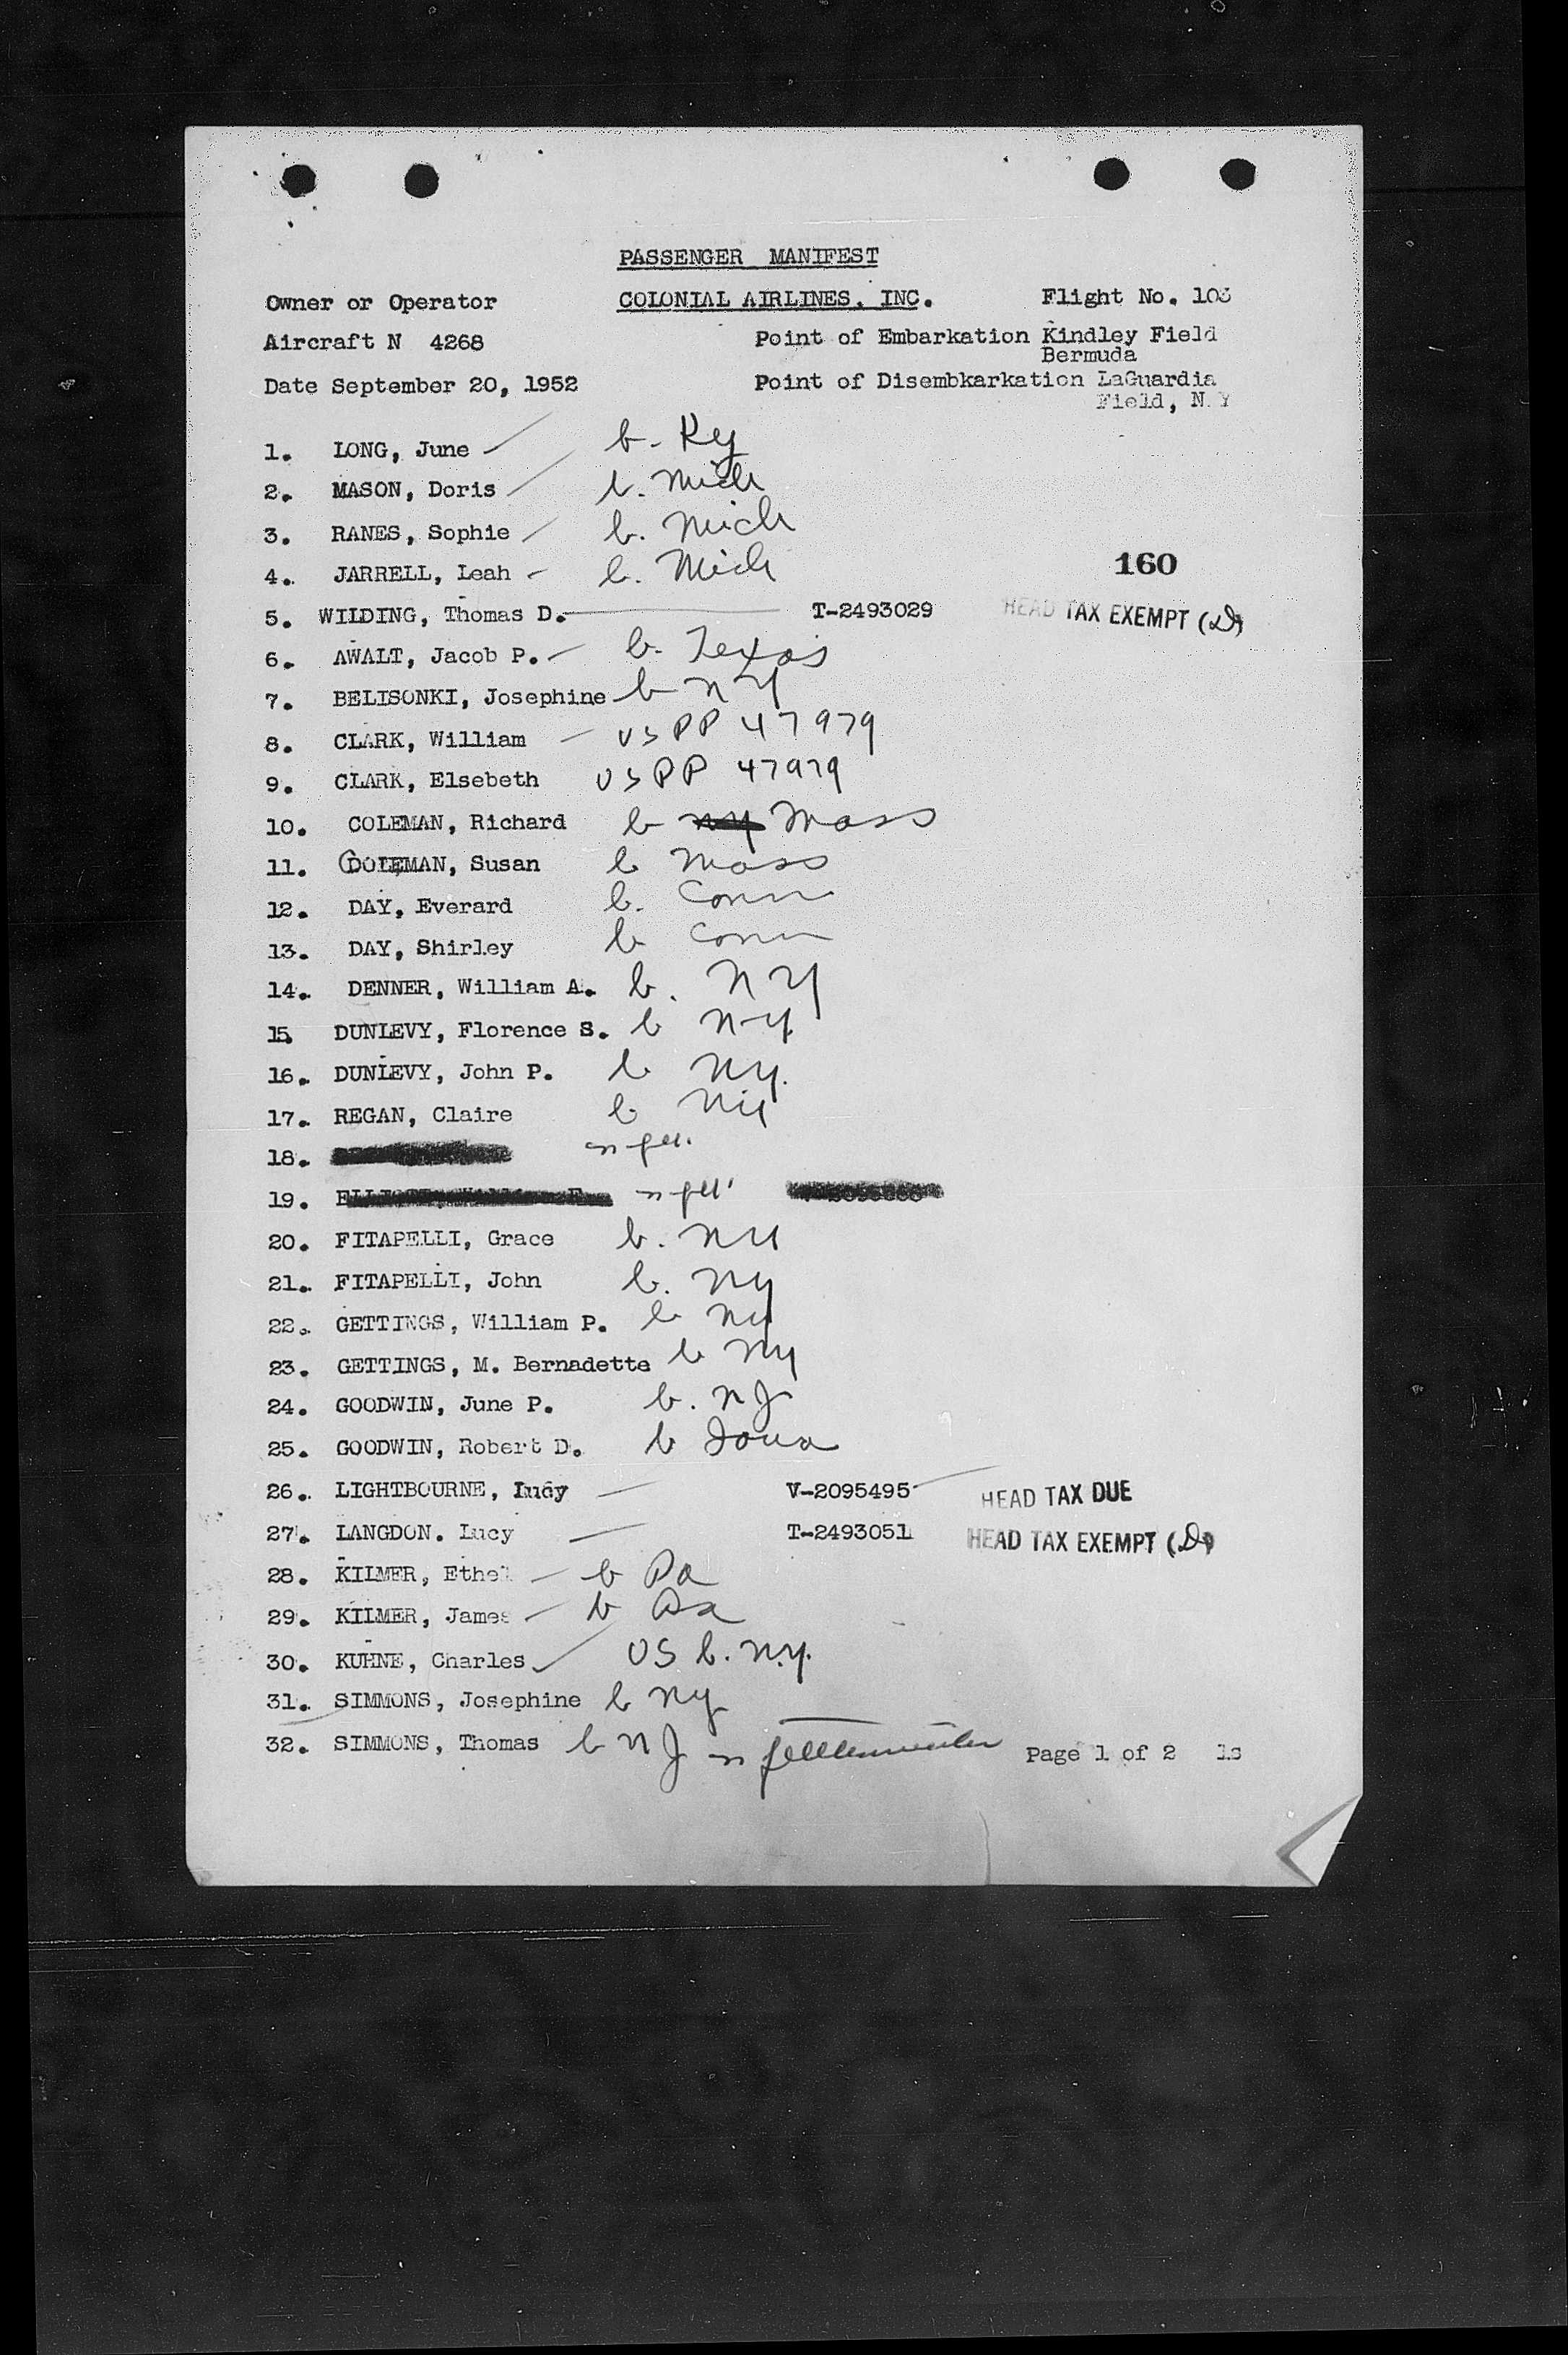 PASSENGER MANIFEST
Owner or Operator COLONIAL AIRLINES, INC. Flight No. 103
Aircraft N 4268 Point of Embarkation Kindley Field
Bermuda
Date September 20, 1952 Point of Disembkarkation LaGuardia
Field, N.Y
1. LONG, June b. Ky
2. MASON, Doris b. Mich
3. RANES, Sophie b. Mich
4. JARRELL, Leah b. Mich
160
5. WILDING, Thomas D. T-2493029 HEAD TAX EXEMPT (D)
6. AWALT, Jacob P. b. Texas
7. BELISONKI, Josephine b NY
8. CLARK, William US PP 47979
9. CLARK, Elsebeth US PP 47979
10. COLEMAN, Richard b Mass
11. COLEMAN, Susan b Mass
12. DAY, Everard b. Conn
13. DAY, Shirley b Conn
14. DENNER, William A. b. NY
15. DUNLEVY, Florence S. b N.Y.
16. DUNLEVY, John P. b NY.
17. REGAN, Claire b NY
18.
19.
20. FITAPELLI, Grace b. NY
21. FITAPELLI, John b. NY
22. GETTINGS, William P. b NY
23. GETTINGS, M. Bernadette b NY
24. GOODWIN, June P. b. NJ
25. GOODWIN, Robert D. b Iowa
26. LIGHTBOURNE, Lucy V-2095495 HEAD TAX DUE
27. LANGDON. Lucy T-2493051 HEAD TAX EXEMPT (D)
28. KILMER, Ethel b Pa
29. KILMER, James b Pa
30. KUHNE, Charles US b. N.Y.
31. SIMMONS, Josephine b NY
32. SIMMONS, Thomas b NJ Page 1 of 2 ls